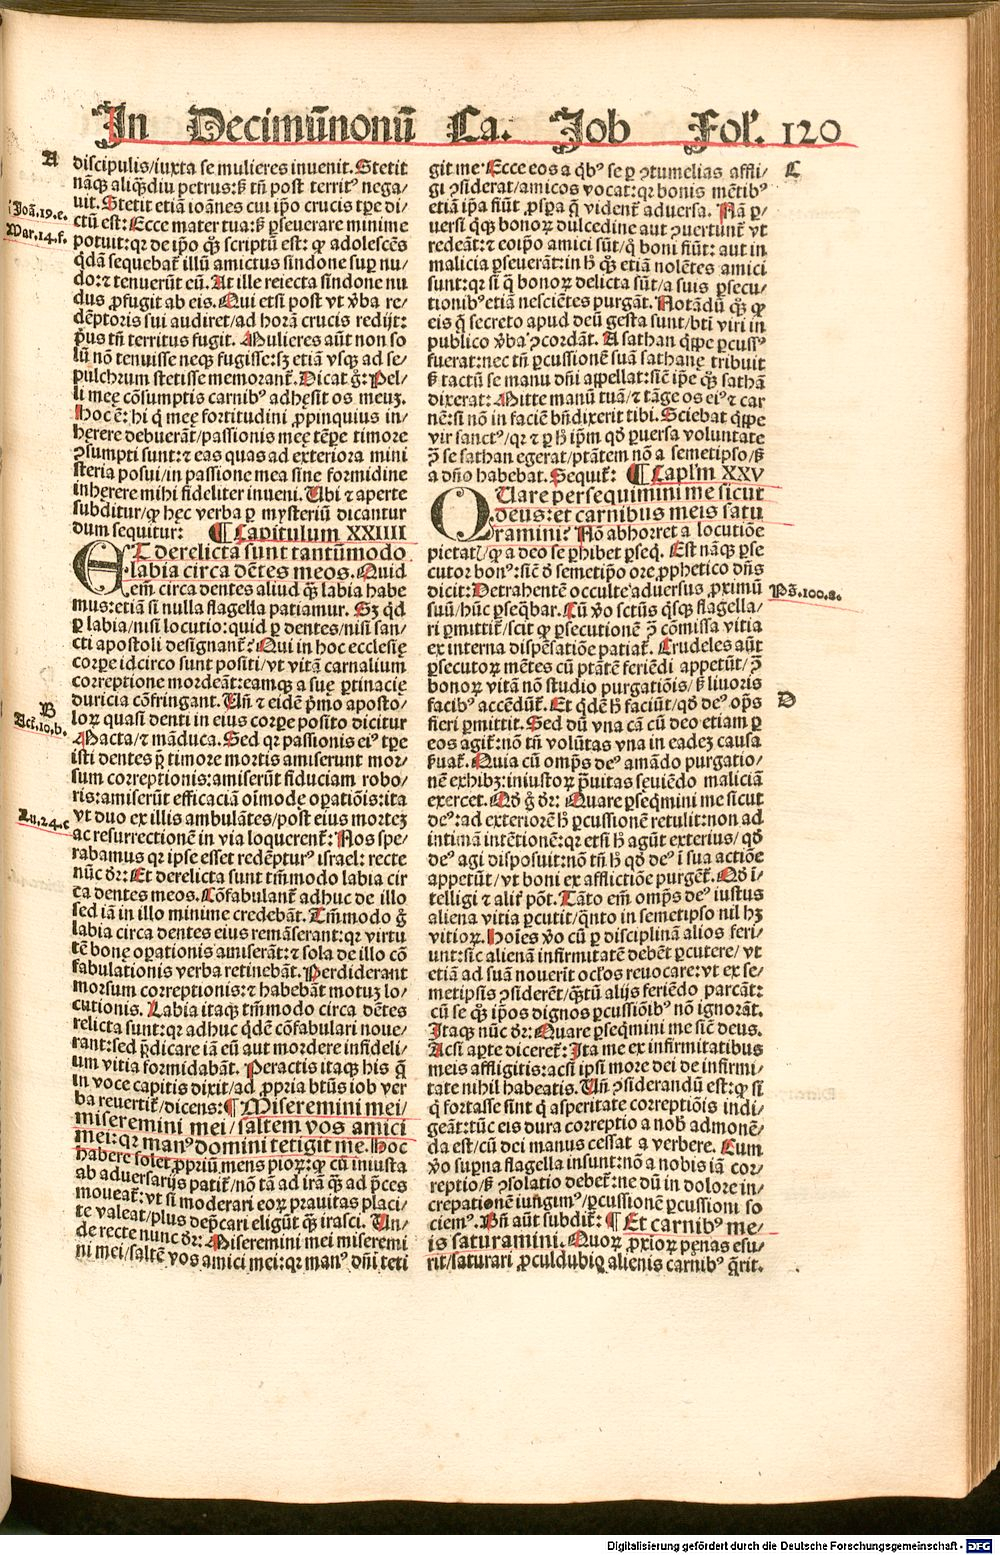 In Decimūnonū Ca. Job Fol. 120
A
Joā.19.e.
Mar.14.f.
B
Act.10.b.
Lu.24.c
discipulis/iuxta se mulieres inuenit. Stetit
nāqȝ aliq̄diu petrus: sȝ tñ post territꝰ nega/
uit. Stetit etiā ioānes cui ip̄o crucis tp̄e di/
ctū est: Ecce mater tua: sȝ ꝑseuerare minime
potuit: qꝛ de ip̄o qȝ scriptū est: ꝙ adolescēs
q̇dā sequebat̃ illū amictus sindone suꝑ nu/
do: ⁊ tenuerūt eū. At ille reiecta sindone nu
dus ꝓfugit ab eis. Qui etsi post vt v̄ba re/
dēptoris sui audiret/ad horā crucis redijt:
pꝰus tñ territus fugit. Mulieres aūt non so
lū nō tenuisse neqȝ fugisse: sȝ etiā vsqȝ ad se/
pulchrum stetisse memorant̃. Dicat g̊: Pel/
li meę cōsumptis carnibꝰ adhęsit os meuȝ.
Hoc ē: hi q̇ meę fortitudini ꝓpinquius in/
hęrere debuerāt/passionis meę tēꝑe timore
ꝯsumpti sunt: ⁊ eas quas ad exteriora mini
steria posui/in passione mea sine formidine
inhęrere mihi fideliter inueni. Ubi ⁊ aperte
subditur/ꝙ hęc verba ꝑ mysteriū dicantur
dum sequitur: ¶ Capitulum XXIIII
ET derelicta sunt tantūmodo
labia circa dētes meos. Quid
em̄ circa dentes aliud q̄ȝ labia habe
mus: etiā si nulla flagella patiamur. Sȝ qd̄
ꝑ labia/nisi locutio: quid ꝑ dentes/nisi san/
cti apostoli designant̃? Qui in hoc ecclesię
corꝑe idcirco sunt positi/vt vitā carnalium
correptione mordeāt: eamqȝ a suę ꝑtinacię
duricia cōfringant. Uñ ⁊ eidē pꝰmo aposto/
loꝝ quasi denti in eius corꝑe posito dicitur
Macta/⁊ māduca. Sed qꝛ passionis eiꝰ tp̄e
isti dentes p̄ timore mortis amiserunt mor/
sum correptionis: amiserūt fiduciam robo/
ris: amiserūt efficaciā oīmode oꝑatiōis: ita
vt duo ex illis ambulātes/post eius morteȝ
ac resurrectionē in via loquerent̃: Nos spe/
rabamus qꝛ ipse esset redēpturꝰ israel: recte
nūc dꝛ: Et derelicta sunt tm̄modo labia cir
ca dentes meos. Cōfabulant̃ adhuc de illo
sed iā in illo minime credebāt. Tm̄modo g̊
labia circa dentes eius remāserant: qꝛ virtu
tē bonę oꝑationis amiserāt: ⁊ sola de illo cō
fabulationis verba retinebāt. Perdiderant
morsum correptionis: ⁊ habebāt motuȝ lo/
cutionis. Labia itaqȝ tm̄modo circa dētes
relicta sunt: qꝛ adhuc q̇dē cōfabulari noue/
rant: sed p̄dicare iā eū aut mordere infideli/
um vitia formidabāt. Peractis itaqȝ his q̄
in voce capitis dixit/ad ꝓpria btūs iob ver
ba reuertit̃/dicens: ¶ Miseremini mei/
miseremini mei/saltem vos amici
mei: qꝛ manꝰ domini tetigit me. Hoc
habere solet ꝓpriū mens pioꝝ: ꝙ cū iniusta
ab aduersarijs patit̃/nō tā ad irā q̄ȝ ad p̄ces
moueat̃: vt si moderari eoꝝ prauitas placi/
te valeat/plus dep̄cari eligūt q̄ȝ irasci. Un/
de recte nunc dꝛ: Miseremini mei miseremi
ni mei/saltē vos amici mei: qꝛ manꝰ dñi teti
git me. Ecce eos a q̇bꝰ se ꝑ ꝯtumelias affli/
gi ꝯsiderat/amicos vocat: qꝛ bonis mētibꝰ
etiā ip̄a fiūt ꝓspa q̄ vident̃ aduersa. Nā ꝑ/
uersi q̇qȝ bonoꝝ dulcedine aut ꝯuertunt̃ vt
redeāt: ⁊ eoip̄o amici sūt/q̇ boni fiūt: aut in
malicia ꝑseuerāt: in h̄ qȝ etiā nolētes amici
sunt: qꝛ si q̄ bonoꝝ delicta sūt/a suis ꝑsecu/
tionibꝰ etiā nesciētes purgāt. Notādū qȝ ꝙ
eis q̄ secreto apud deū gesta sunt/bti viri in
publico v̄ba ꝯcordāt. A sathan q̇ppe ꝑcussꝰ
fuerat: nec tñ ꝑcussionē suā sathanę tribuit
sȝ tactū se manu dñi appellat: sic̄ ip̄e qȝ sathā
dixerat: Mitte manū tuā/⁊ tāge os eiꝰ ⁊ car
nē: si nō in faciē bn̄dixerit tibi. Sciebat q̇ppe
vir sanctꝰ/qꝛ ⁊ ꝑ h̄ ip̄m qd̄ ꝑuersa voluntate
ꝯ̄ se sathan egerat/ptātem nō a semetipso/sȝ
a dño habebat. Sequit̃: ¶ Capl'm XXV
QUare persequimini me sicut
deus: et carnibus meis satu
ramini? Nō abhorret a locutiōe
pietatꝭ/ꝙ a deo se ꝑhibet ꝑseq̇. Est nāqȝ ꝑse
cutor bonꝰ: sic̄ d̄ semetip̄o ore ꝓphetico dñs
dicit: Detrahentē occulte aduersus ꝓximū
suū/hūc ꝑseq̄bar. Cū v̄o sctūs q̇sqȝ flagella/
ri ꝑmittit̃/scit ꝙ ꝑsecutionē ꝯ̄ cōmissa vitia
ex interna dispēsatiōe patiat̃. Crudeles aūt
ꝑsecutoꝝ mētes cū ptātē feriēdi appetūt/ꝯ̄
bonoꝝ vitā nō studio purgatiōis/sȝ liuoris
facibꝰ accēdūt̃. Et q̇dē h̄ faciūt/qd̄ deꝰ op̄s
fieri ꝑmittit. Sed dū vna cā cū deo etiam ꝑ
eos agit̃: nō tñ volūtas vna in eadeȝ causa
ẜuat̃. Quia cū omp̄s deꝰ amādo purgatio/
nē exhibȝ: iniustoꝝ p̄uitas seuiēdo maliciā
exercet. Qd̄ g̊ dꝛ: Quare ꝑseq̄mini me sicut
deꝰ: ad exteriorē h̄ ꝑcussionē retulit: non ad
intimā intētionē: qꝛ etsi h̄ agūt exterius/qd̄
deꝰ agi disposuit: nō tñ h̄ qd̄ deꝰ ī sua actiōe
appetūt/vt boni ex afflictiōe purgēt̃. Qd̄ ī/
telligi ⁊ alit̃ pōt. Tāto em̄ omp̄s deꝰ iustus
aliena vitia ꝑcutit/q̄nto in semetipso nil hȝ
vitioꝝ. Hoīes v̄o cū ꝑ disciplinā alios feri/
unt: sic alienā infirmitatē debēt ꝑcutere/vt
etiā ad suā nouerit ocl'os reuocare: vt ex se/
metipsis ꝯsiderēt/q̄tū alijs feriēdo parcāt:
cū se qȝ ip̄os dignos ꝑcussiōibꝰ nō ignorāt.
Itaqȝ nūc dꝛ: Quare ꝑseq̄mini me sic̄ deus.
Acsi aꝑte diceret̃: Ita me ex infirmitatibus
meis affligitis: acsi ipsi more dei de infirmi/
tate nihil habeatis. Uñ ꝯsiderandū est: ꝙ si
q̇ fortasse sint q̇ asperitate correptiōis indi/
geāt: tūc eis dura correptio a nob̄ admonē/
da est/cū dei manus cessat a verbere. Cum
v̄o suꝑna flagella insunt: nō a nobis iā cor/
reptio/sȝ ꝯsolatio debet̃: ne dū in dolore in/
crepationē iungimꝰ/ꝑcussionē ꝑcussioni so
ciemꝰ. Bñ aūt subdit̃: ¶ Et carnibꝰ me/
is saturamini. Quoꝝ ꝓxioꝝ pęnas esu/
rit/saturari ꝓculdubio alienis carnibꝰ q̄rit.
C
Ps̄.100.a.
D
Digitalisierung gefördert durch die Deutsche Forschungsgemeinschaft - DFG